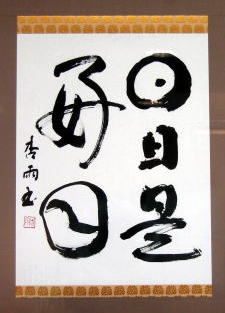 日日是
好日
杏雨書